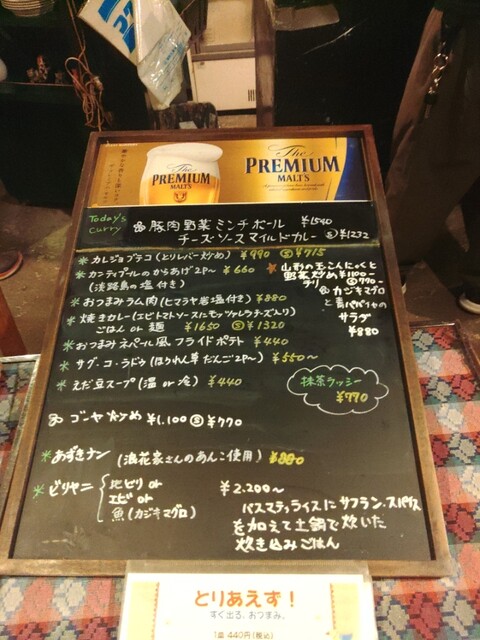 The PREMIUM MALT'S
The PREMIUM MALT'S
Today's Curry
豚肉野菜ミンチボール ¥1540
チーズソースマイルドカレー Ⓢ¥1232
* カレジョプテコ(とりレバー炒め) ¥990 Ⓢ¥715
* カンティプールのからあげ2P〜 ¥660
(淡路島の塩付き)
* おつまみラム肉(ヒマラヤ岩塩付き) ¥880
* 焼きカレー(エビトマトソースにモッツァレラチーズ入り)
ごはん or 麺 ¥1650 Ⓢ¥1320
* おつまみネパール風フライドポテト ¥440
* サグ・コ・ラドゥ(ほうれん草だんご2P〜) ¥550〜
* えだ豆スープ(温 or 冷) ¥440
★山形の玉こんにゃくと
野菜炒め ¥1100〜
チリ Ⓢ770〜
カジキマグロと
青パパイヤの
サラダ
¥880
抹茶ラッシー
¥770
ゴーヤ炒め ¥1,100 Ⓢ¥770
* あずきナン(浪花家さんのあんこ使用) ¥880
* ビリヤニ
エビ or
魚(カジキマグロ)
¥2.200〜
バスマティライスにサフラン・スパイス
を加えて土鍋で炊いた
炊き込みごはん
とりあえず!
すぐ出る、おつまみ。
1皿 440円(税込)